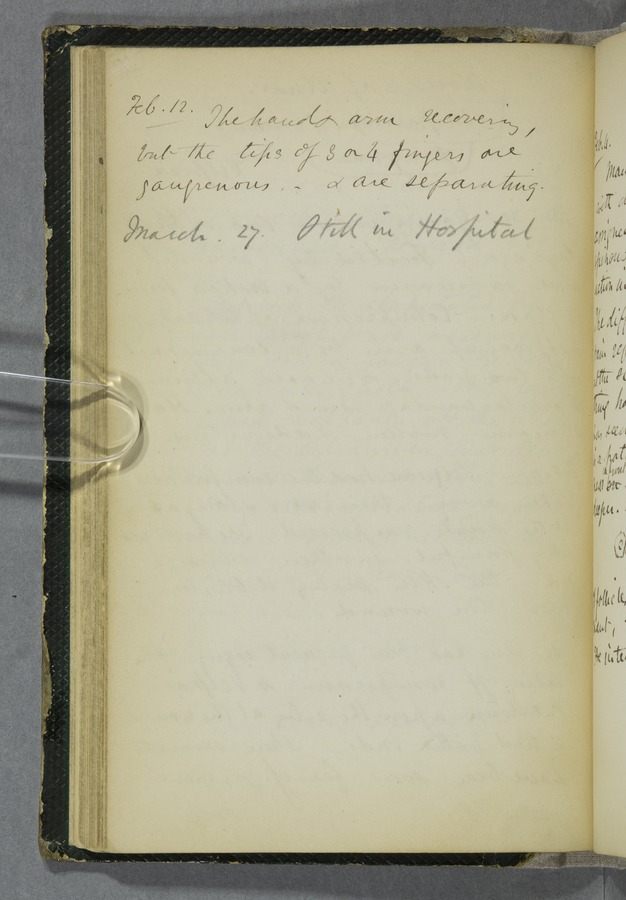 Feb. 12. The hand & arm recovering,
but the tips of 3 or 4 fingers are
gangrenous. - & are separating.
March. 27. Still in Hospital